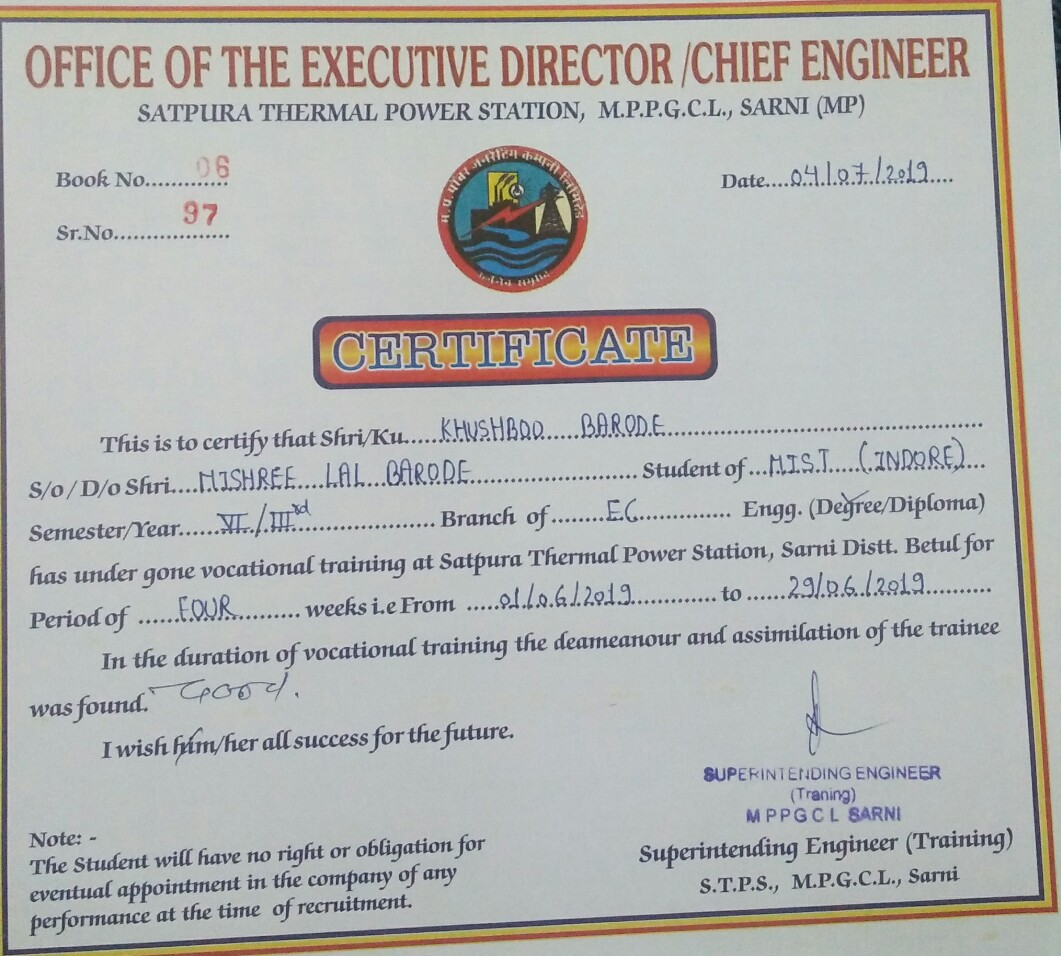 OFFICE OF THE EXECUTIVE DIRECTOR /CHIEF ENGINEER
SATPURA THERMAL POWER STATION, M.P.P.G.C.L., SARNI (MP)
Book No.............. 06
Date....04/07/2019....
Sr.No.................. 97
म.प्र.पॉवर जनरेटिंग कम्पनी लिमिटेड
CERTIFICATE
This is to certify that Shri/Ku.....KHUSHBOO.....BARODE.............................................
S/o / D/o Shri....MISHREE...LAL...BARODE........................ Student of...M.I.S.T....(INDORE)...
Semester/Year......VI/IIIrd.................. Branch of........EC............. Engg. (Degree/Diploma)
has under gone vocational training at Satpura Thermal Power Station, Sarni Distt. Betul for
Period of ......FOUR.......... weeks i.e From .....01/06/2019............ to ......29/06/2019..........
In the duration of vocational training the deameanour and assimilation of the trainee
was found. Good.
I wish him/her all success for the future.
SUPERINTENDING ENGINEER
(Traning)
M P P G C L SARNI
Superintending Engineer (Training)
S.T.P.S., M.P.G.C.L., Sarni
Note: -
The Student will have no right or obligation for
eventual appointment in the company of any
performance at the time of recruitment.